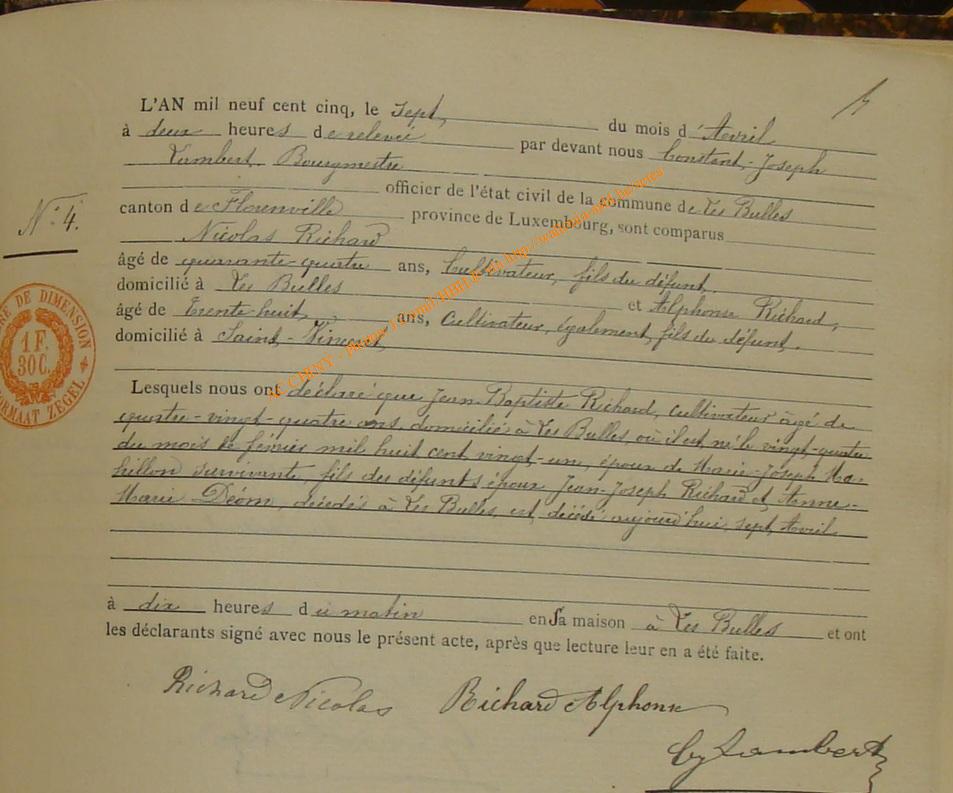 L'AN mil neuf cent cinq, le sept, du mois d'Avril
à deux heures de relevée par devant nous Constant-Joseph
Lambert Bourgmestre
officier de l'état civil de la commune de Les Bulles
N° 4.
canton de Florenville province de Luxembourg, sont comparus
Nicolas Richard
âgé de quarante-quatre ans, Cultivateur, fils du défunt,
domicilié à Les Bulles et Alphonse Richard,
âgé de Trente huit ans, Cultivateur, également, fils du défunt.
domicilié à Saint-Vincent
DE DIMENSION
1 F.
30 C.
FORMAAT ZEGEL
Lesquels nous ont déclaré que Jean Baptiste Richard, cultivateur âgé de
quatre-vingt-quatre ans domicilié à Les Bulles où il est né le vingt-quatre
du mois de février mil huit cent vingt-un, époux de Marie-Joseph Ma-
hillon survivante, fils des défunts époux Jean-Joseph Richard et Anne-
Marie Déom, décédés à Les Bulles, est décédé aujourd'hui sept Avril
à dix heures du matin en sa maison à Les Bulles et ont
les déclarants signé avec nous le présent acte, après que lecture leur en a été faite.
Richard Nicolas Richard Alphonse
Lambert